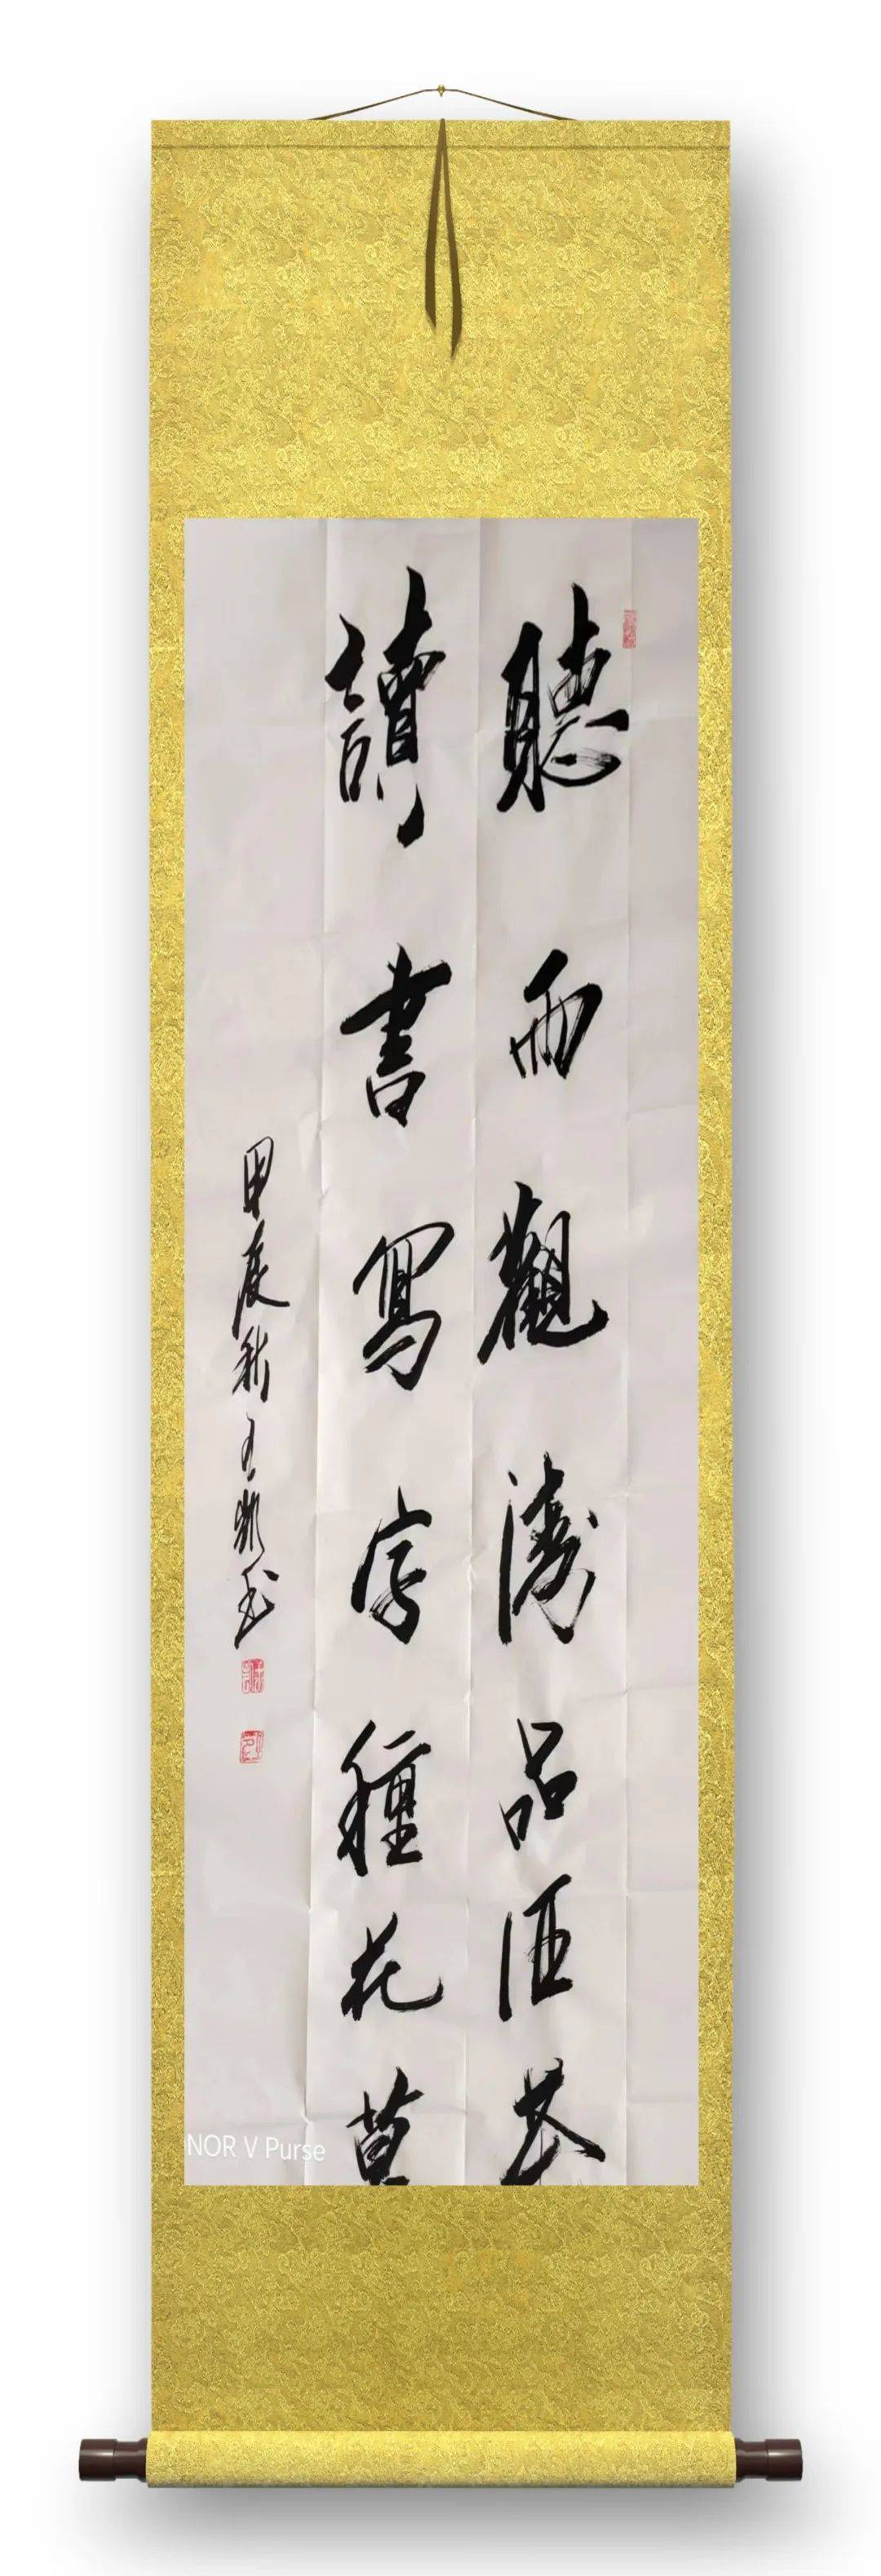 聽雨觀濤品酒茶
讀書寫字種花草
甲辰秋王凱書
NOR V Purse